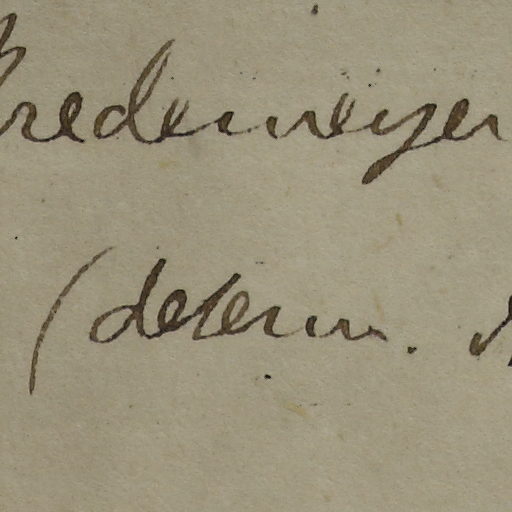 Bredemeyer
(determ.